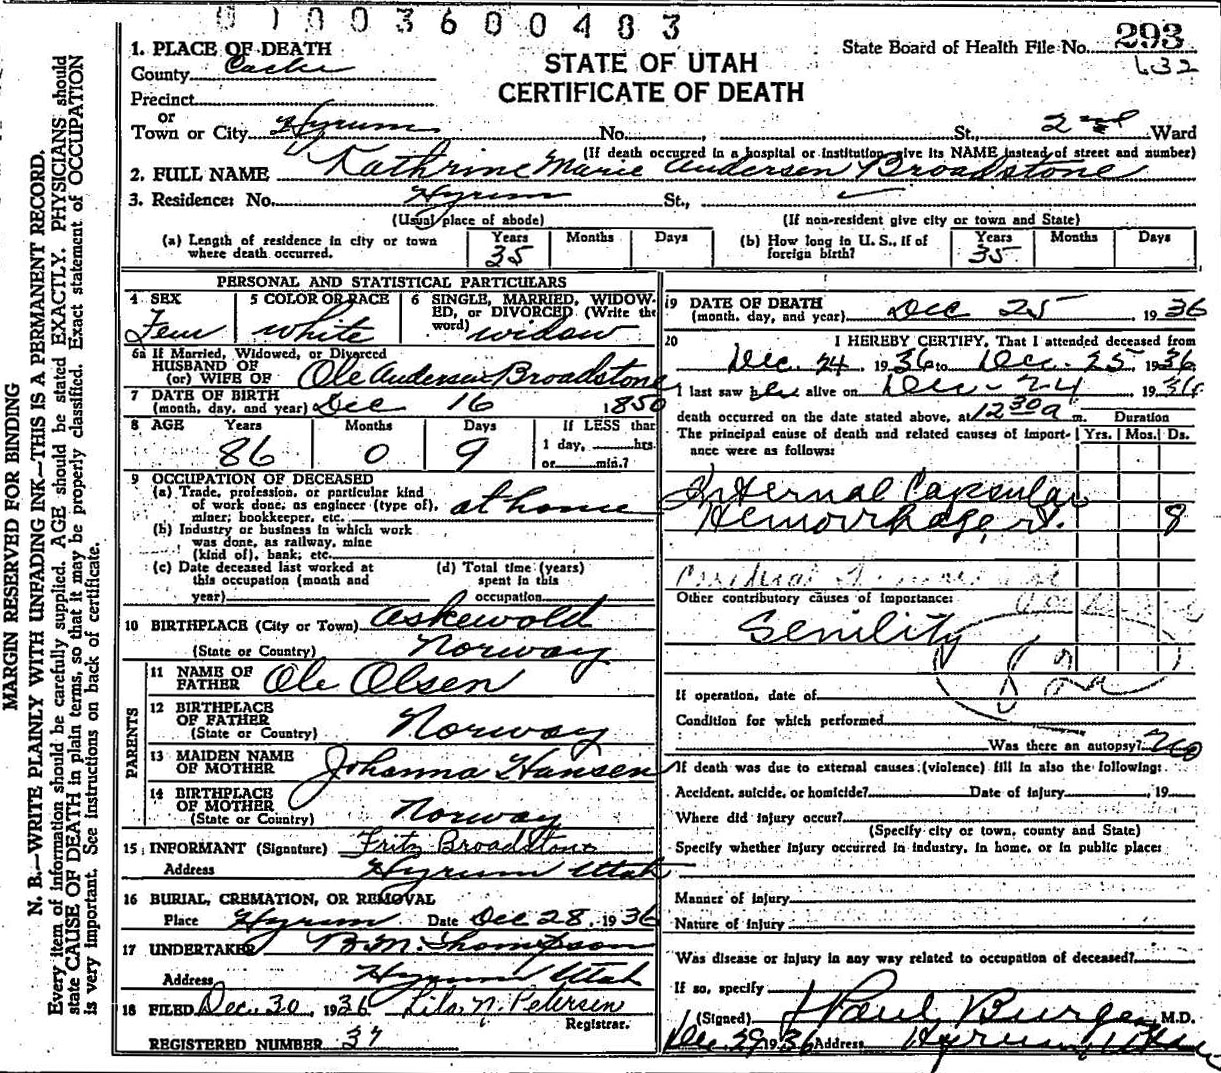 0 1 0 0 3 6 0 0 4 8 3
State Board of Health File No. 293
632
STATE OF UTAH
CERTIFICATE OF DEATH
1. PLACE OF DEATH
County Cache
Precinct
or
Town or City Hyrum No. , St., 2nd Ward
(If death occurred in a hospital or institution give its NAME instead of street and number)
2. FULL NAME Kathrine Marie Andersen Broadstone
3. Residence: No. Hyrum St.,
(Usual place of abode) (If non-resident give city or town and State)
(a) Length of residence in city or town where death occurred. Years 35 Months Days
(b) How long in U. S., if of foreign birth? Years 35 Months Days
PERSONAL AND STATISTICAL PARTICULARS
4 SEX Fem
5 COLOR OR RACE white
6 SINGLE, MARRIED, WIDOWED, or DIVORCED (Write the word) widow
6a If Married, Widowed, or Divorced
HUSBAND OF
(or) WIFE OF Ole Andersen Broadstone
7 DATE OF BIRTH
(month, day, and year) Dec 16 1850
8 AGE Years 86 Months 0 Days 9
If LESS than
1 day, hrs.
or min.?
9 OCCUPATION OF DECEASED
(a) Trade, profession, or particular kind of work done, as engineer (type of), miner; bookkeeper, etc. at home
(b) Industry or business in which work was done, as railway, mine (kind of), bank; etc.
(c) Date deceased last worked at this occupation (month and year)
(d) Total time (years) spent in this occupation
10 BIRTHPLACE (City or Town) Askewold
(State or Country) Norway
PARENTS
11 NAME OF FATHER Ole Olsen
12 BIRTHPLACE OF FATHER
(State or Country) Norway
13 MAIDEN NAME OF MOTHER Johanna Hansen
14 BIRTHPLACE OF MOTHER
(State or Country) Norway
15 INFORMANT (Signature) Fritz Broadstone
Address Hyrum Utah
16 BURIAL, CREMATION, OR REMOVAL
Place Hyrum Date Dec 28, 1936
17 UNDERTAKER B. M. Thompson
Address Hyrum Utah
18 FILED Dec. 30, 1936 Lila N. Petersen
Registrar.
REGISTERED NUMBER 37
19 DATE OF DEATH
(month, day, and year) Dec 25 1936
20 I HEREBY CERTIFY, That I attended deceased from
Dec. 24, 1936 to Dec. 25 1936
I last saw her alive on Dec - 24 1936
death occurred on the date stated above, at 12 30 a m. Duration
The principal cause of death and related causes of importance were as follows: Yrs. Mos. Ds.
Internal Capsular
Hemorrhage, rt. 8
Cerebral
Other contributory causes of importance:
Senility
82a
If operation, date of
Condition for which performed
Was there an autopsy? no
If death was due to external causes (violence) fill in also the following:
Accident, suicide, or homicide? Date of injury , 19
Where did injury occur?
(Specify city or town, county and State)
Specify whether injury occurred in industry, in home, or in public place:
Manner of injury
Nature of injury
Was disease or injury in any way related to occupation of deceased?
If so, specify
(Signed) Paul Burgess, M.D.
Dec. 29 1936 Address Hyrum, Utah
MARGIN RESERVED FOR BINDING
N. B.—WRITE PLAINLY WITH UNFADING INK—THIS IS A PERMANENT RECORD.
Every item of information should be carefully supplied. AGE should be stated EXACTLY. PHYSICIANS should
state CAUSE OF DEATH in plain terms, so that it may be properly classified. Exact statement of OCCUPATION
is very important. See instructions on back of certificate.